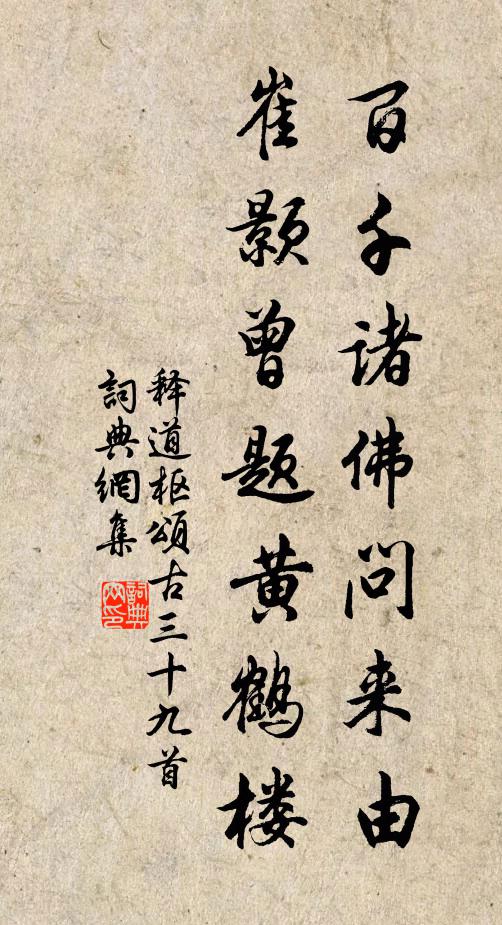 百千诸佛问来由
崔颢曾题黄鹤楼
释道枢颂古三十九首
詞典網集
詞典網印